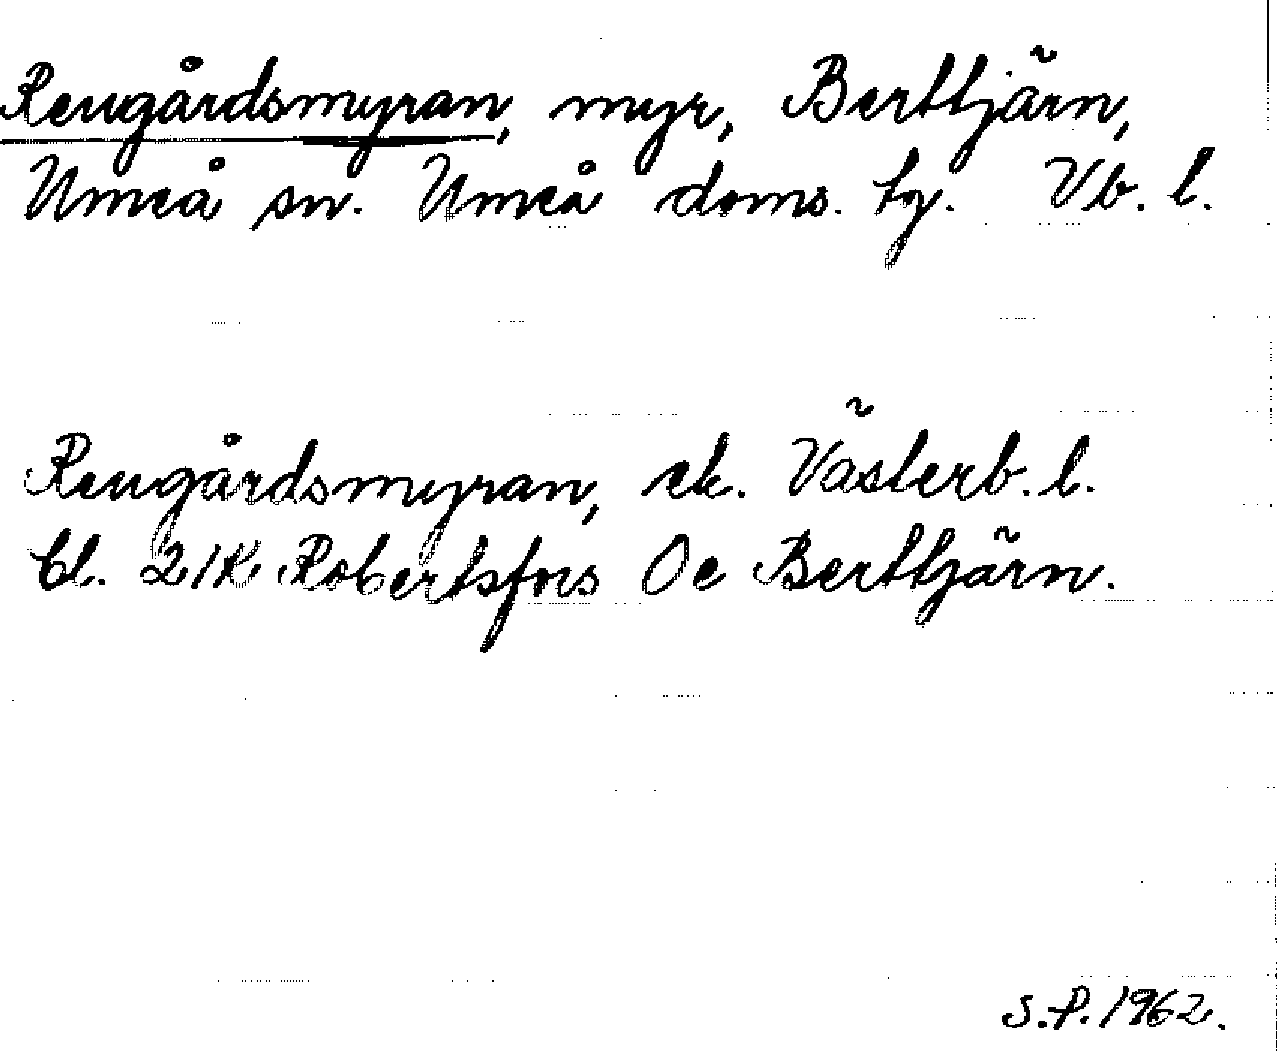 Rengårdsmyran, myr, Berttjärn,
Umeå sn. Umeå doms. tg. Vb. l.
Rengårdsmyran, ek. Västerb. l.
bl. 21K Robertsfors Oe Berttjärn.
S.P. 1962.